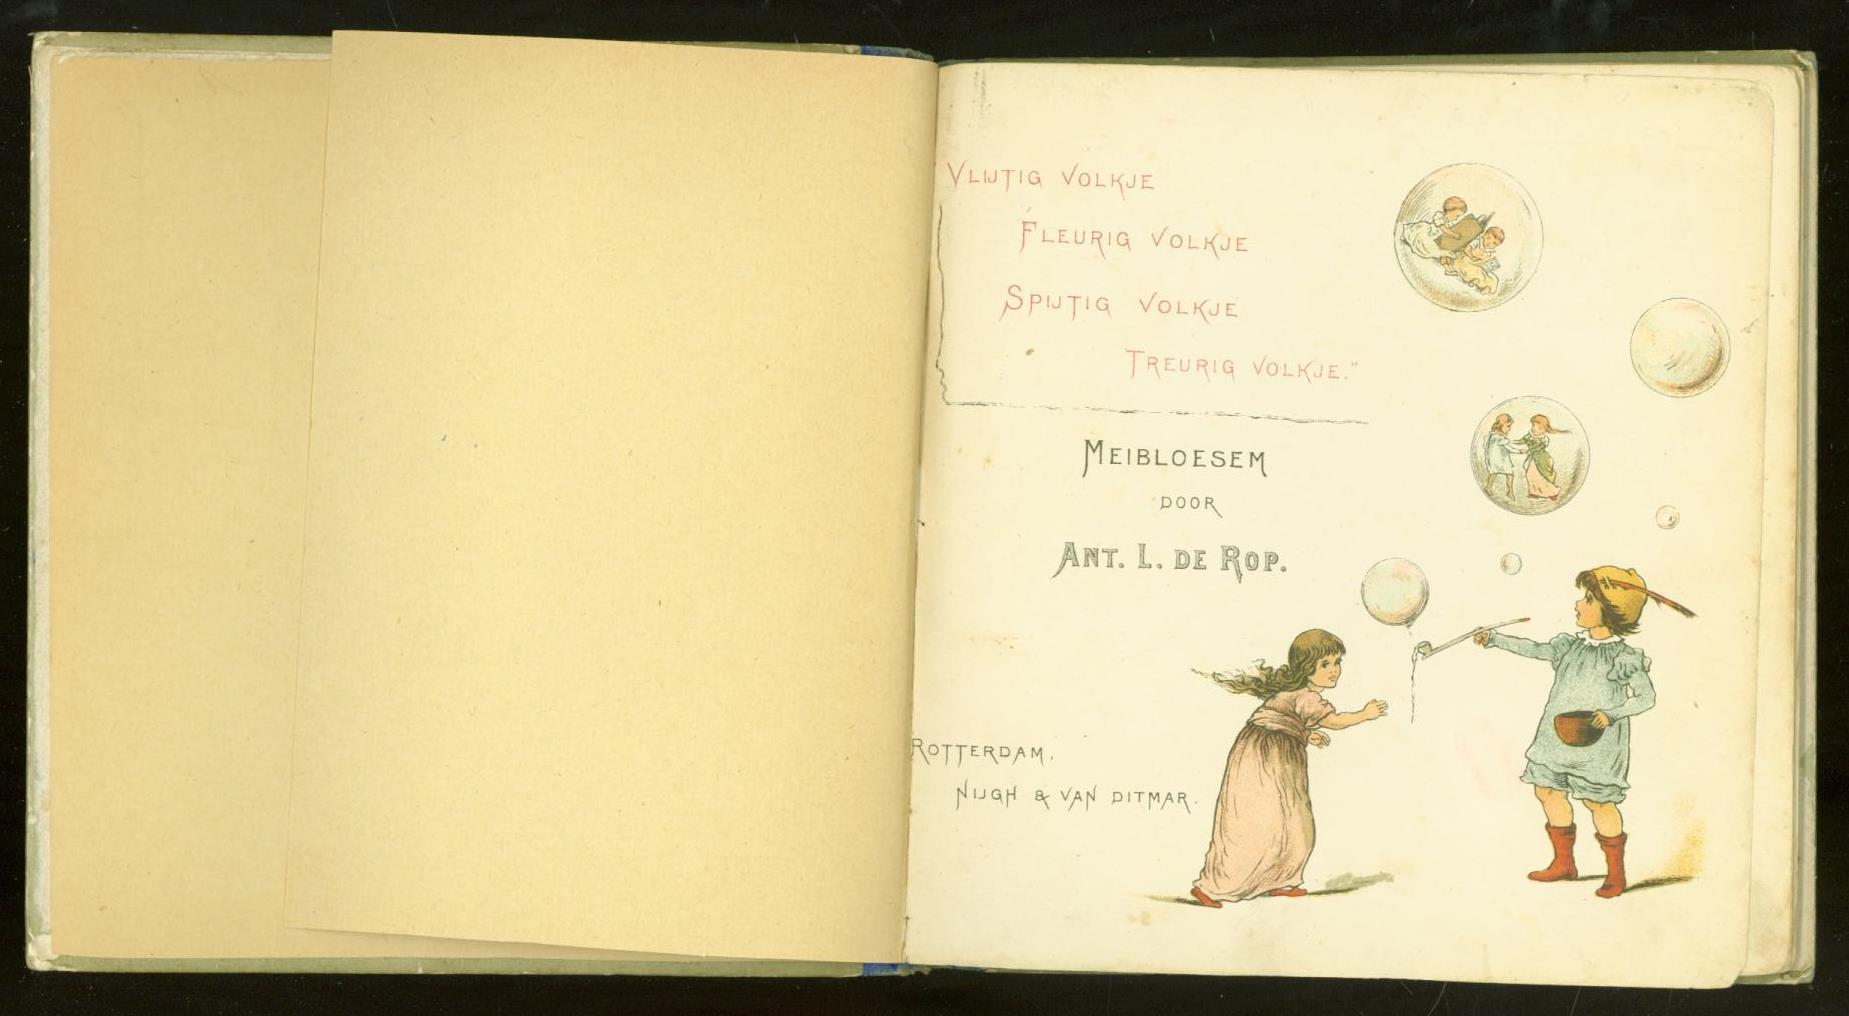 Vlijtig volkje
Fleurig volkje
Spijtig volkje
Treurig volkje."
Meibloesem
door
Ant. L. de Rop.
Rotterdam.
Nijgh & van Ditmar.